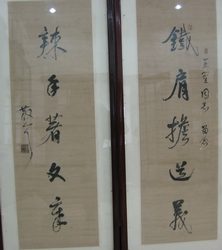 鐵肩擔道義
同志
辣手著文章